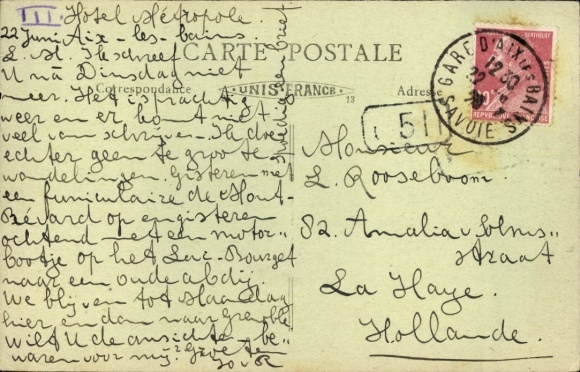 III.
Hôtel Métropole.
22 Juni Aix-les-bains.
L. M. Ik schreef
U na Dinsdag niet
meer. Het is prachtig
weer en er komt niet
veel van schrijven. Ik doe
echter geen te groote
wandelingen. Gisteren met
een funiculaire de Mont-
Révard op en gisteren
ochtend met een motor-
bootje op het Lac-Bourget
naar een oude abdij.
We blijven tot Maandag
hier en dan naar Grenoble
wilt U de ansichten be-
waren voor mij? Groeten
CARTE POSTALE
Correspondance
UNIS FRANCE
13
Adresse
GARE D'AIX LES BAINS
12 30
22
SAVOIE
51
Monsieur
L. Rooseboom.
82. Amalia v Solms-
straat
La Haye.
Hollande.